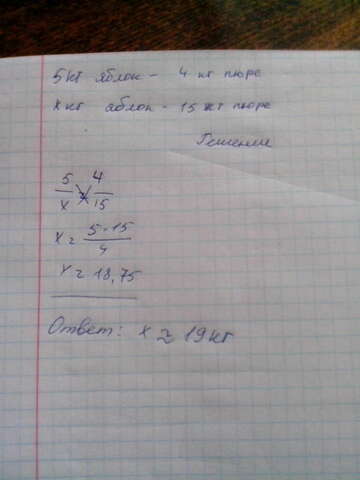 5 кг яблок - 4 кг пюре
x кг яблок - 15 кг пюре
Решение
5/x = 4/15
x = 5·15/4
x = 18,75
Ответ: x ≈ 19 кг